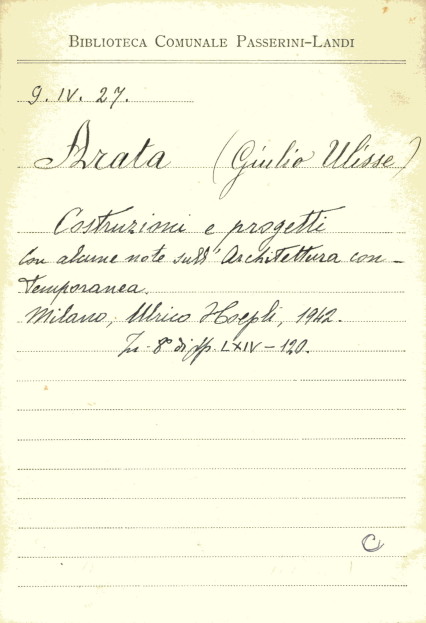 BIBLIOTECA COMUNALE PASSERINI-LANDI
9. IV. 27.
Arata (Giulio Ulisse)
Costruzioni e progetti
Con alcune note sull'Architettura con-
temporanea.
Milano, Ulrico Hoepli, 1942.
In 8° di pp. LXIV-120.
C